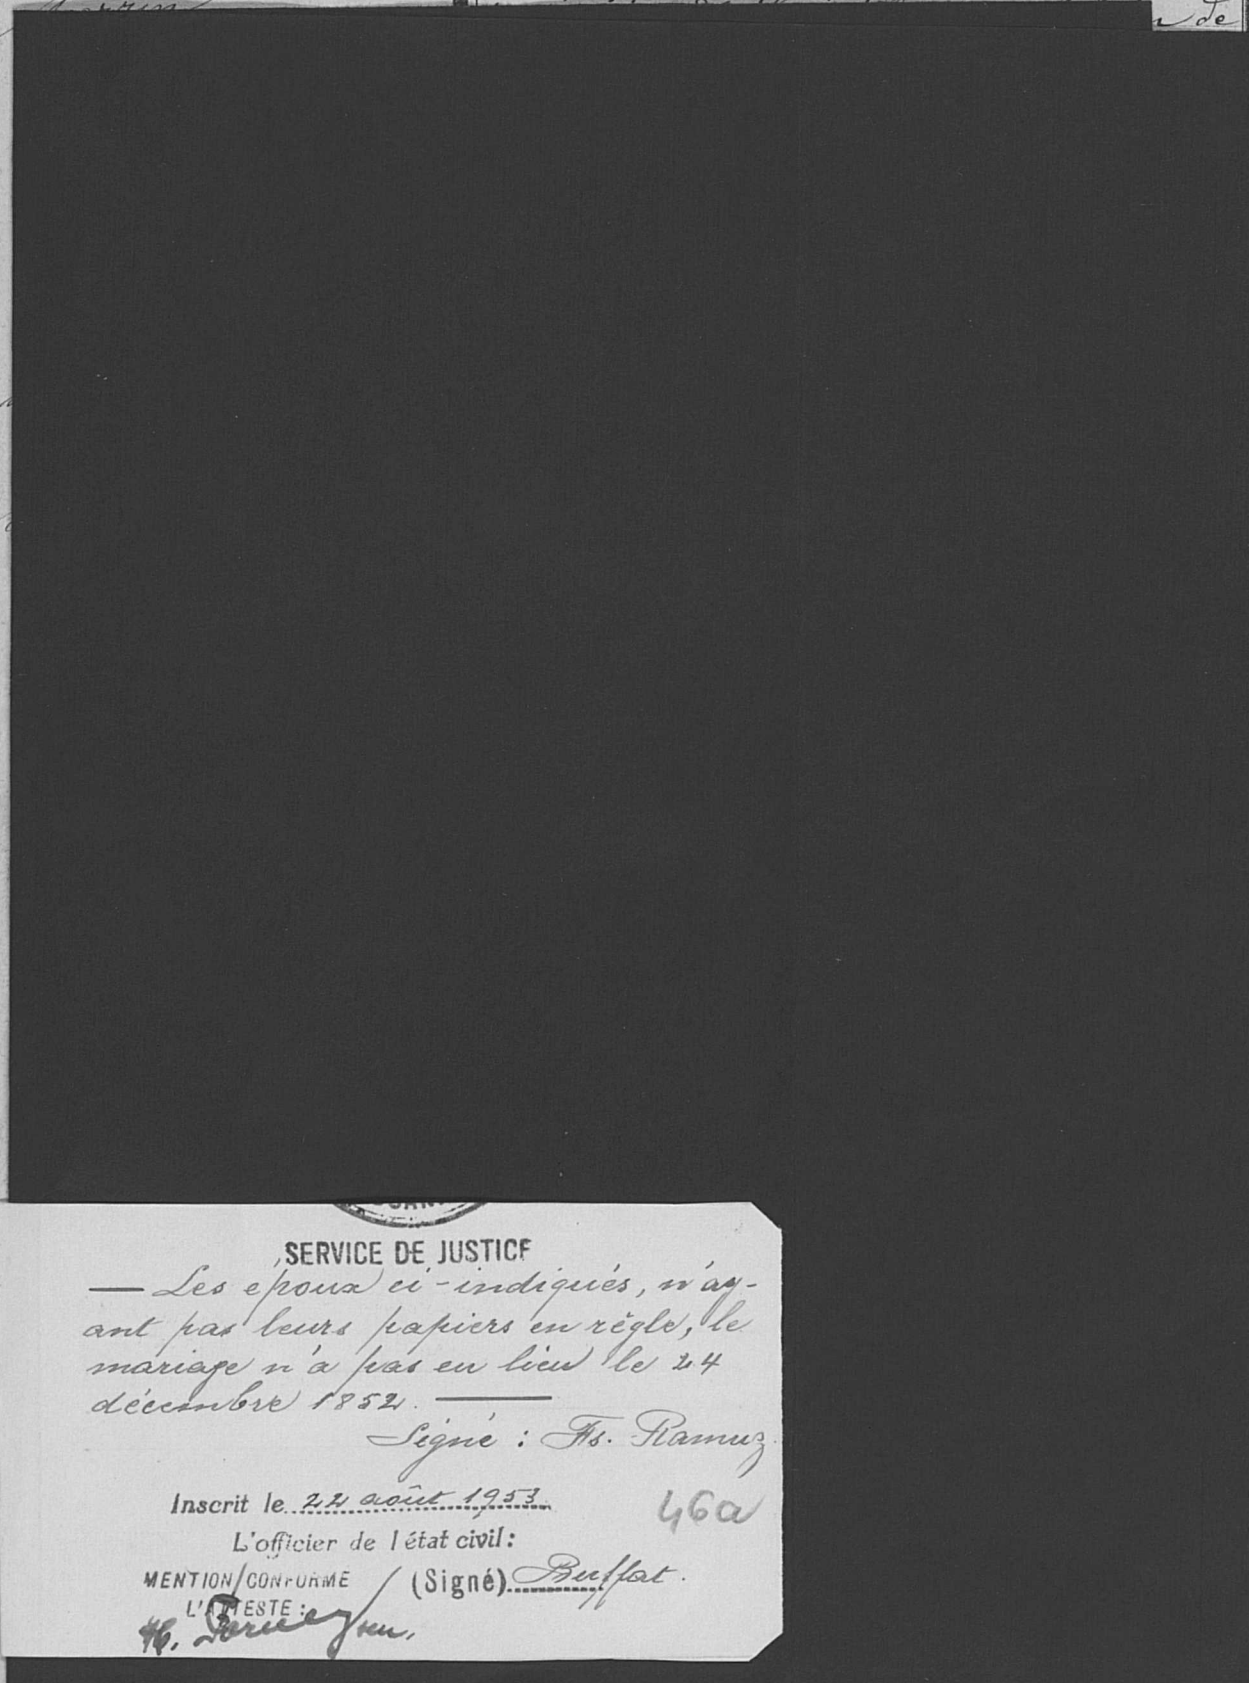 de
SERVICE DE JUSTICE
— Les epoux ci-indiqués, n'ay-
ant pas leurs papiers en règle, le
mariage n'a pas eu lieu le 24
décembre 1852. —
Signé : Fs. Ramuz
Inscrit le 22 août 1953
46a
L'officier de l'état civil:
MENTION CONFORME
(Signé) Buffat.
L'ATTESTE :